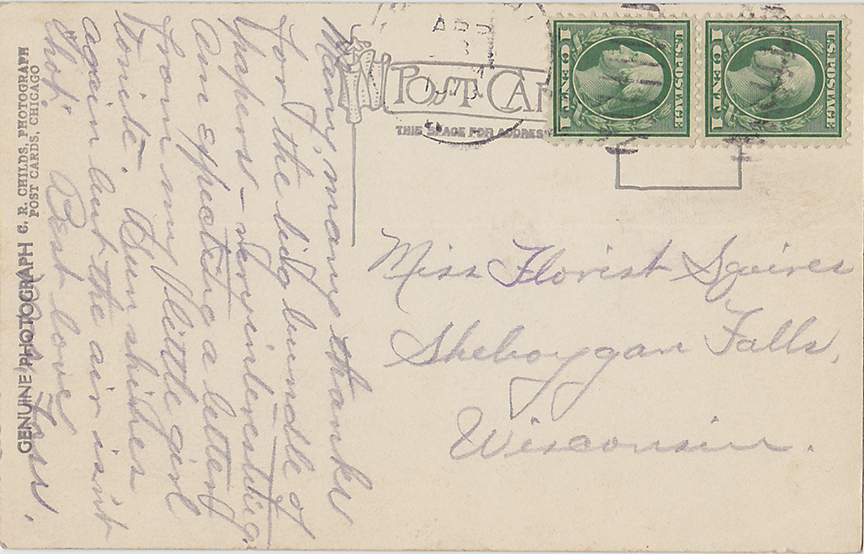 GENUINE PHOTOGRAPH C. R. CHILDS, PHOTOGRAPH
POST CARDS, CHICAGO
POST CAR
THIS SPACE FOR ADDRESS
APR
U.S. POSTAGE
1 CENT 1
U.S. POSTAGE
1 CENT 1
Many, many thanks
for the big bundle of
papers - very interesting.
Am expecting a letter
from my little girl
tonite. Sun shines
again but the air isn't
hot. Best love
Miss Florist Squires
Sheboygan Falls,
Wisconsin.